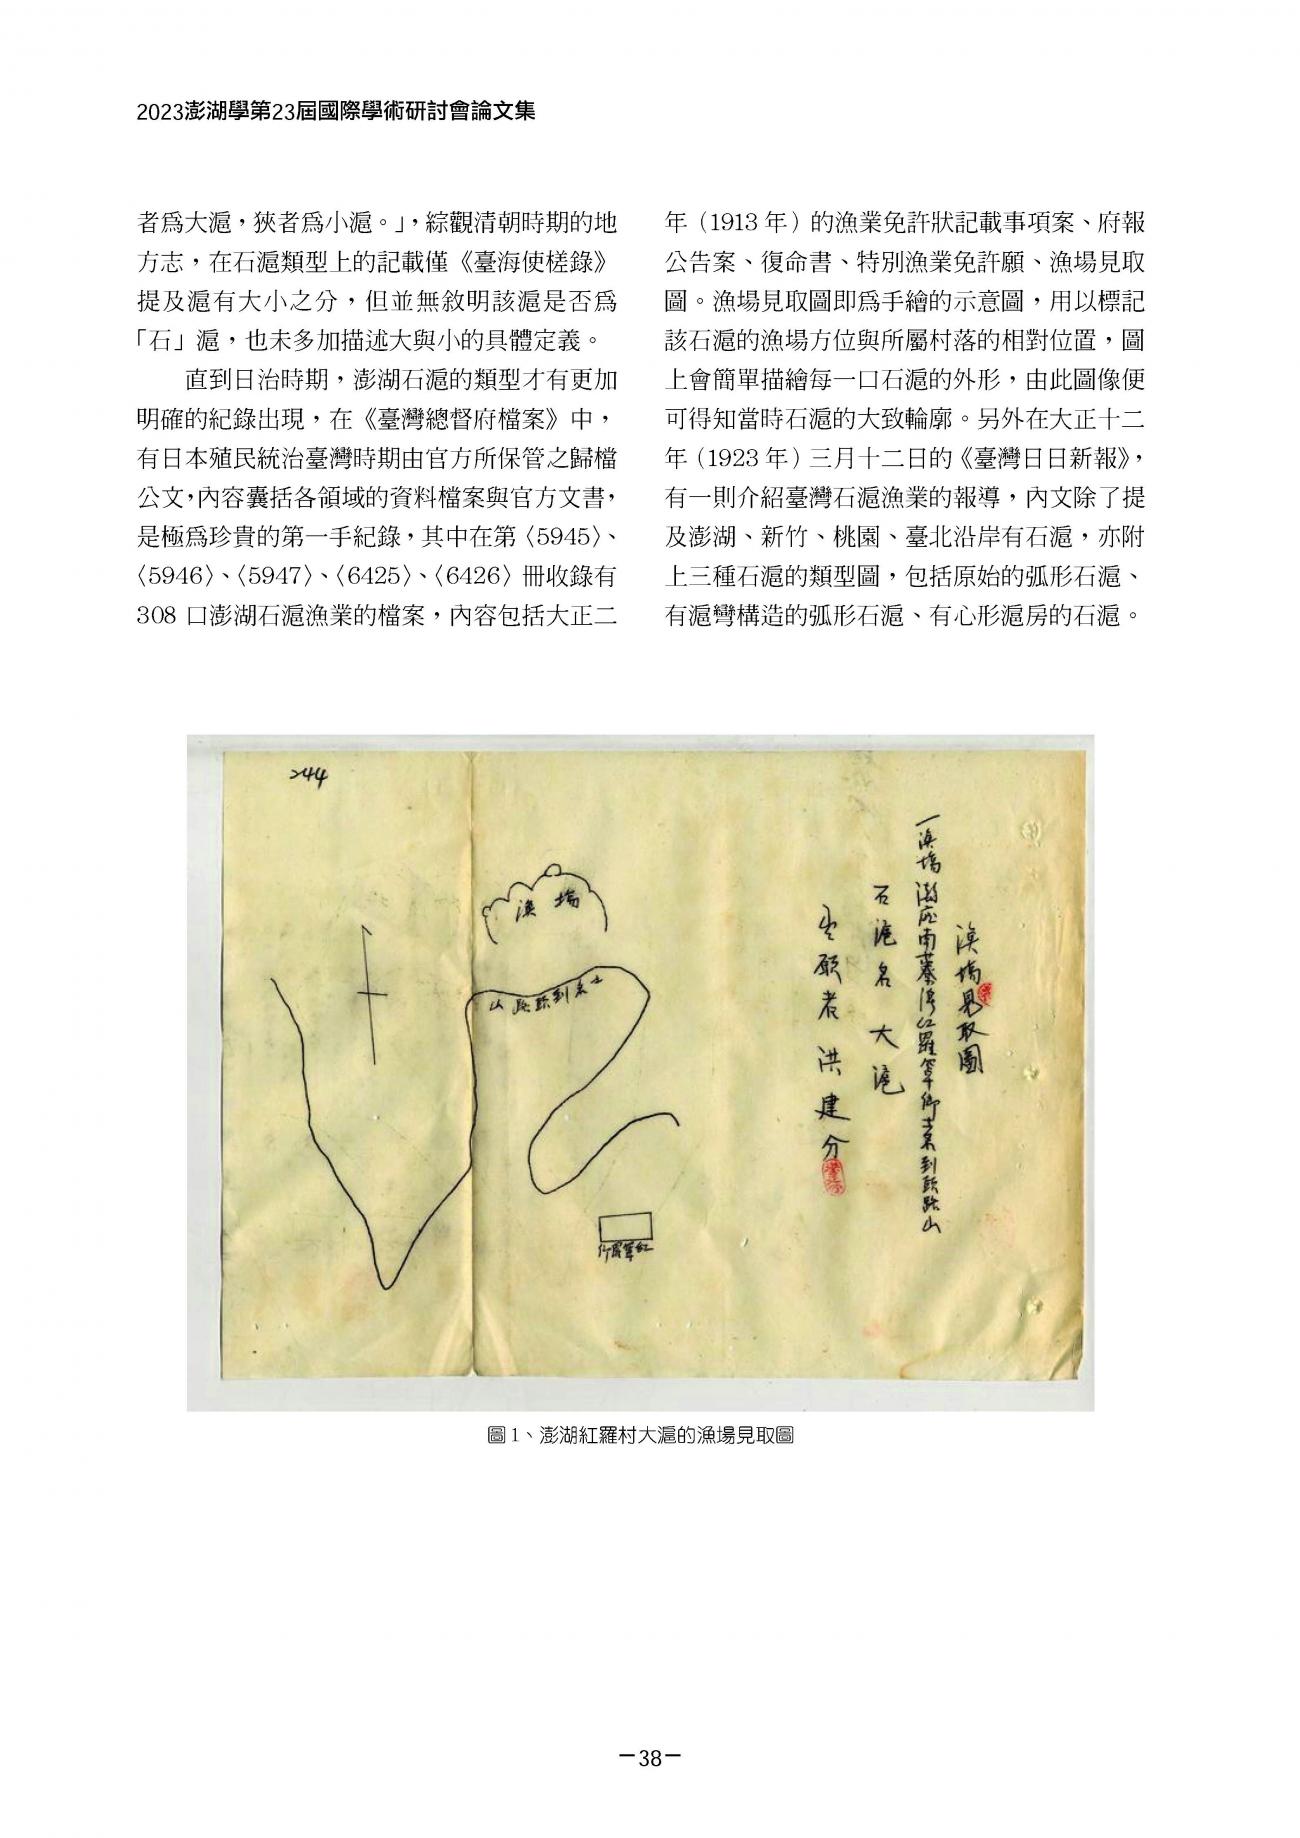 2023澎湖學第23屆國際學術研討會論文集
者爲大滬，狹者爲小滬。」，綜觀清朝時期的地
方志，在石滬類型上的記載僅《臺海使槎錄》
提及滬有大小之分，但並無敘明該滬是否爲
「石」滬，也未多加描述大與小的具體定義。
直到日治時期，澎湖石滬的類型才有更加
明確的紀錄出現，在《臺灣總督府檔案》中，
有日本殖民統治臺灣時期由官方所保管之歸檔
公文，內容囊括各領域的資料檔案與官方文書，
是極爲珍貴的第一手紀錄，其中在第〈5945〉、
〈5946〉、〈5947〉、〈6425〉、〈6426〉冊收錄有
308 口澎湖石滬漁業的檔案，內容包括大正二
年（1913 年）的漁業免許狀記載事項案、府報
公告案、復命書、特別漁業免許願、漁場見取
圖。漁場見取圖即爲手繪的示意圖，用以標記
該石滬的漁場方位與所屬村落的相對位置，圖
上會簡單描繪每一口石滬的外形，由此圖像便
可得知當時石滬的大致輪廓。另外在大正十二
年（1923 年）三月十二日的《臺灣日日新報》，
有一則介紹臺灣石滬漁業的報導，內文除了提
及澎湖、新竹、桃園、臺北沿岸有石滬，亦附
上三種石滬的類型圖，包括原始的弧形石滬、
有滬彎構造的弧形石滬、有心形滬房的石滬。
244
漁場見取圖
一漁場 澎庁南藔湾紅羅罩鄉 到頭跆山
石滬名 大滬
出願者 洪建分
漁場
到頭跆山
紅羅罩
圖 1、澎湖紅羅村大滬的漁場見取圖
－38－